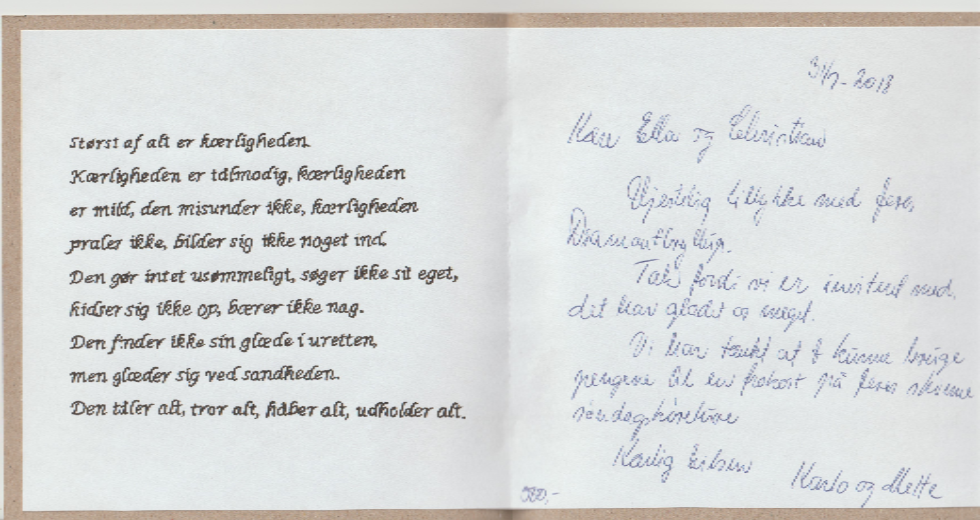 Størst af alt er kærligheden.
Kærligheden er tålmodig, kærligheden
er mild, den misunder ikke, kærligheden
praler ikke, bilder sig ikke noget ind.
Den gør intet usømmeligt, søger ikke sit eget,
hidser sig ikke op, bærer ikke nag.
Den finder ikke sin glæde i uretten,
men glæder sig ved sandheden.
Den tåler alt, tror alt, håber alt, udholder alt.
2018
Kære Ella og Christian
Hjertelig tillykke med jeres
Drømmebryllup.
Tak fordi vi er inviteret med,
det har glædet os meget.
Vi har tænkt at I kunne bruge
pengene til en frokost på jeres skønne
Kærlig hilsen
Karlo og Mette
500,-